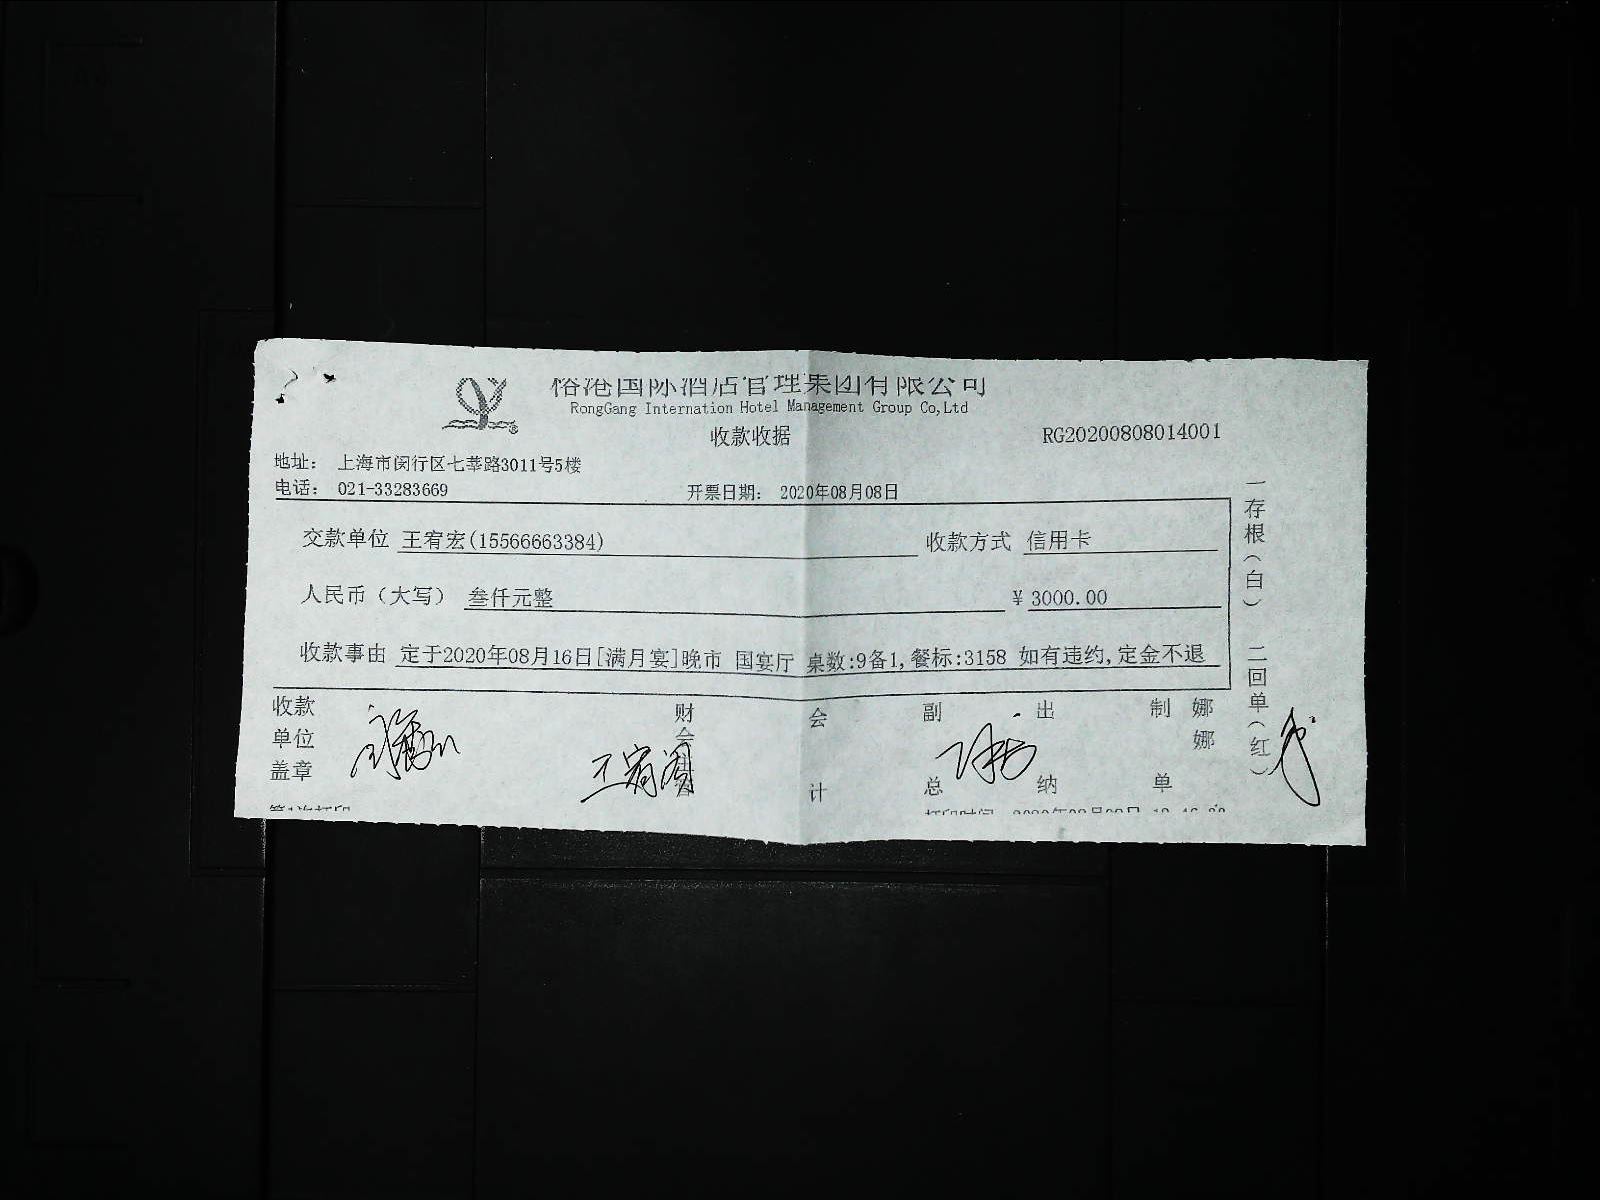 国际酒店管理集团有限公司
RongGang Internation Hotel Management Group Co,Ltd
收款收据
RG20200808014001
地址： 上海市闵行区七莘路3011号5楼
电话： 021-33283669
开票日期： 2020年08月08日
交款单位 王宥宏(15566663384) 收款方式 信用卡
人民币（大写） 叁仟元整 ¥ 3000.00
收款事由 定于2020年08月16日[满月宴]晚市 国宴厅 桌数:9备1,餐标:3158 如有违约,定金不退
收款单位盖章
财会
会计
副总
出纳
制单
娜娜
一存根（白） 二回单（红）